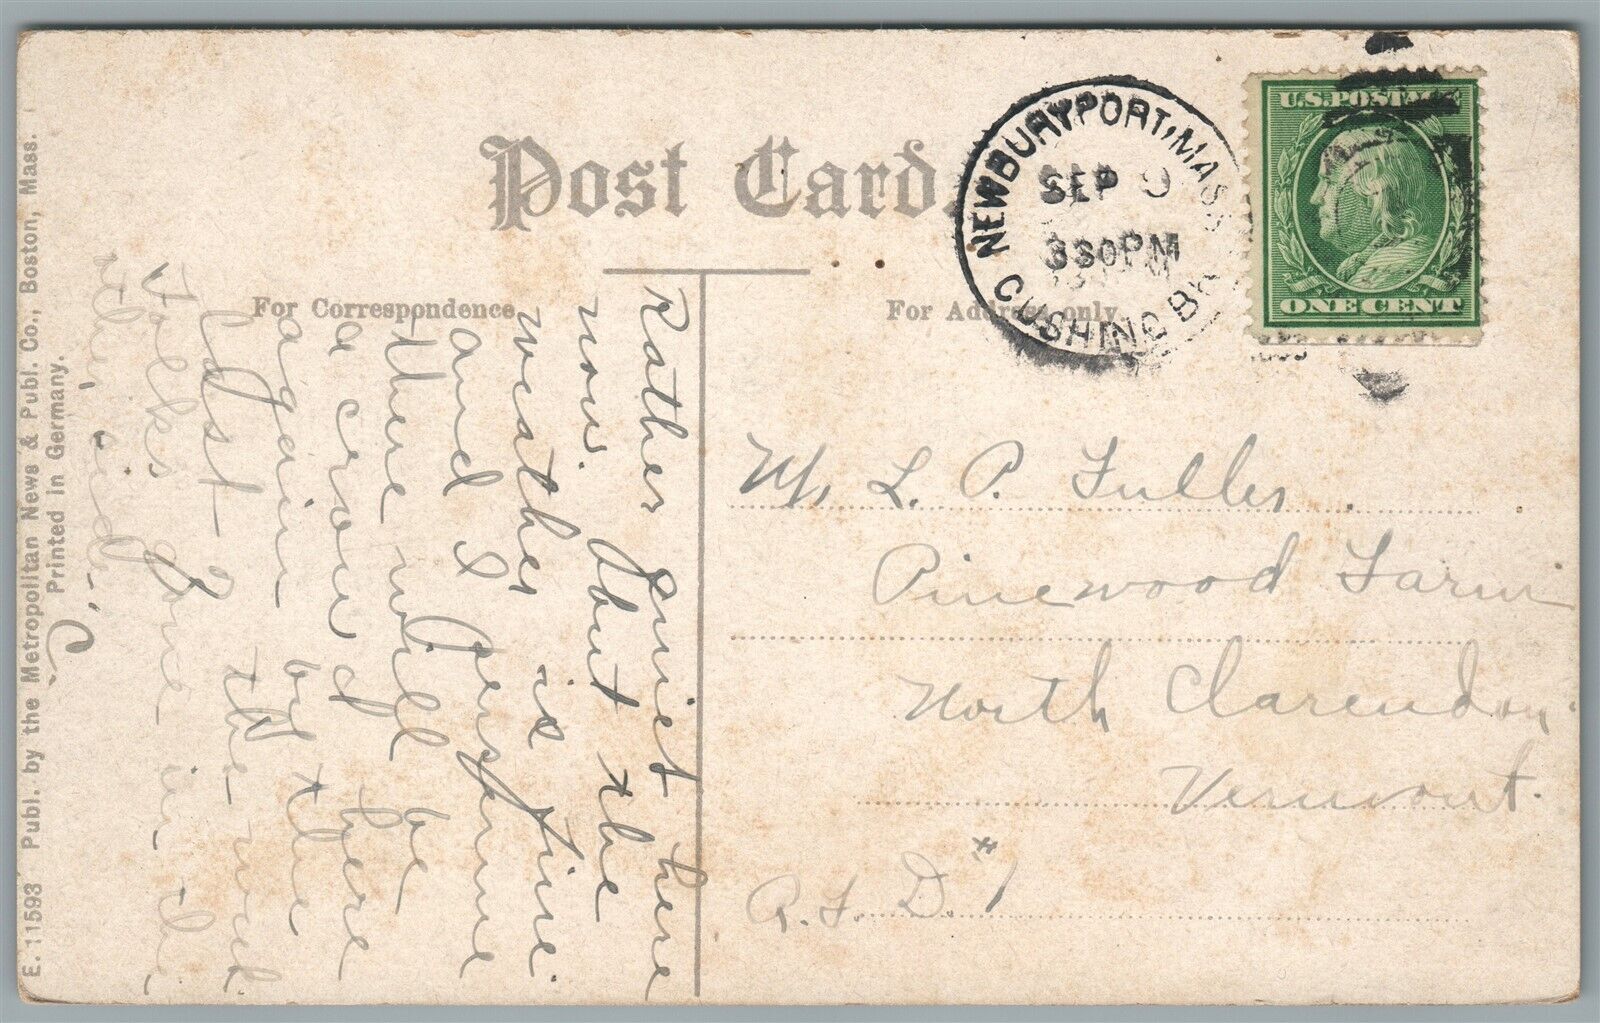 Post Card.
For Correspondence.
For Address only.
NEWBURYPORT, MASS.
SEP 9
330PM
CUSHING BR.
U.S. POSTAGE
ONE CENT
Rather quiet here
now. But the
weather is fine
and I presume
there will be
a crowd here
again by the
last of the week
Folks gone in the
other side. C.
Mr L. P. Fuller.
Pinewood Farm
North Clarendon
Vermont.
R. F. D. #1
E. 11593 Publ. by the Metropolitan News & Publ. Co., Boston, Mass.
Printed in Germany.